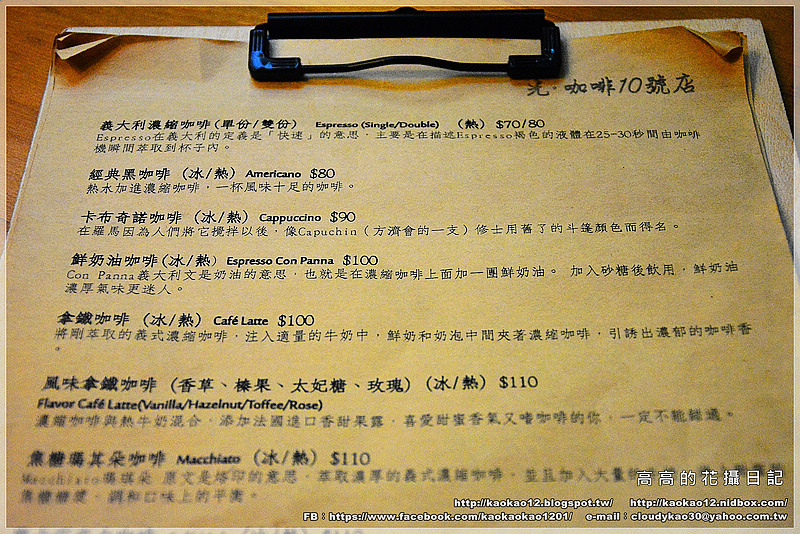 光·咖啡10號店
義大利濃縮咖啡(單份/雙份) Espresso (Single/Double) (熱) $70/80
Espresso在義大利的定義是「快速」的意思，主要是在描述Espresso褐色的液體在25-30秒間由咖啡
機瞬間萃取到杯子內。
經典黑咖啡 (冰/熱) Americano $80
熱水加進濃縮咖啡，一杯風味十足的咖啡。
卡布奇諾咖啡 (冰/熱) Cappuccino $90
在羅馬因為人們將它攪拌以後，像Capuchin（方濟會的一支）修士用舊了的斗篷顏色而得名。
鮮奶油咖啡(冰/熱) Espresso Con Panna $100
Con Panna義大利文是奶油的意思，也就是在濃縮咖啡上面加一團鮮奶油。 加入砂糖後飲用，鮮奶油
濃厚氣味更迷人。
拿鐵咖啡 (冰/熱) Café Latte $100
將剛萃取的義式濃縮咖啡，注入適量的牛奶中，鮮奶和奶泡中間夾著濃縮咖啡，引誘出濃郁的咖啡香
。
風味拿鐵咖啡 (香草、榛果、太妃糖、玫瑰) (冰/熱) $110
Flavor Café Latte(Vanilla/Hazelnut/Toffee/Rose)
濃縮咖啡與熱牛奶混合，添加法國進口香甜果露，喜愛甜蜜香氣又嗜咖啡的你，一定不能錯過。
焦糖瑪其朵咖啡 Macchiato (冰/熱) $110
Macchiato瑪琪朵 原文是烙印的意思，萃取濃厚的義式濃縮咖啡，並且加入大量的
焦糖糖漿，調和口味上的平衡。
高高的花攝日記
http://kaokao12.blogspot.tw/ http://kaokao12.nidbox.com/
FB：https://www.facebook.com/kaokaokao1201/ e-mail：cloudykao30@yahoo.com.tw